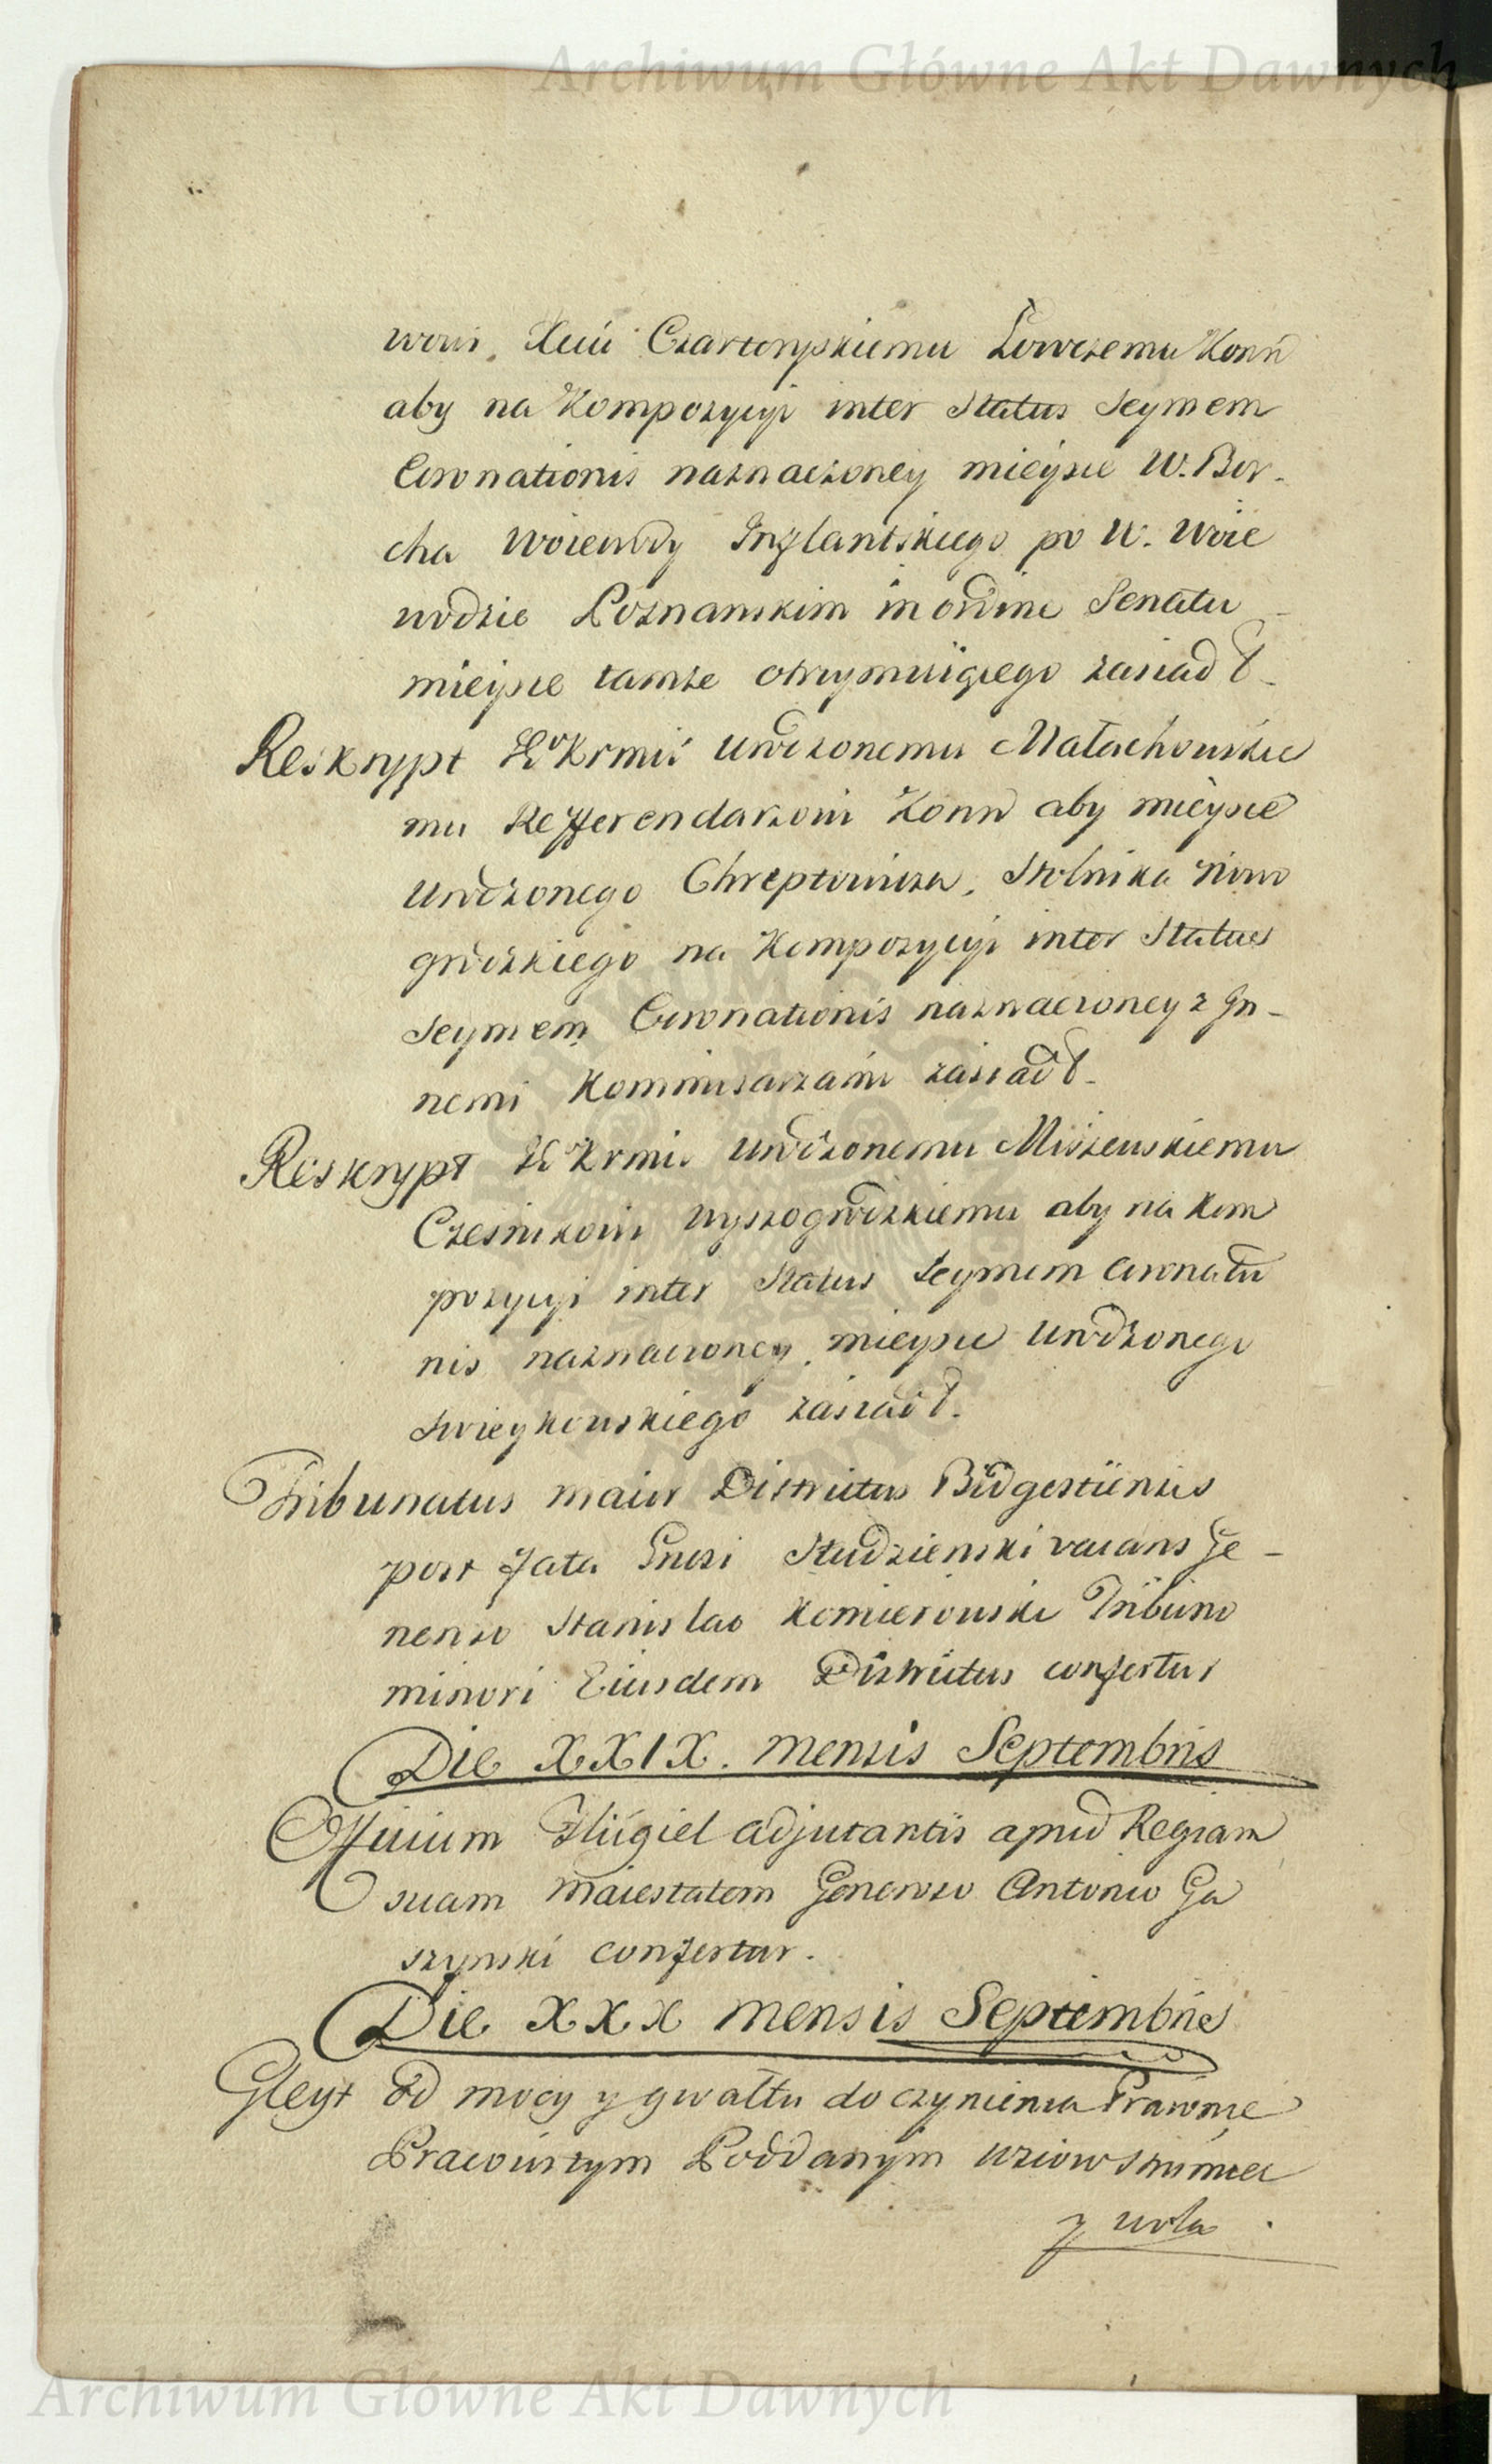 Archiwum Główne Akt Dawnych
Xciu Czartoryskiemu Łowczemu Konn
aby na Kompozycyi inter Status Seymem
Coronationis naznaczoney mieysce W. Bor-
cha Woiewody Inflantskiego po W. Woie
wodzie Poznanskim in ordine Senatu
mieysce tamże otrzymuiącego zasiadł
Reskrypt do Kommis: Urodzonemu Małachowskie
mu Refferendarzowi Konn aby mieysce
Urodzonego Chreptowicza, Stolnika Nowo
grodzkiego na Kompozycyi inter Status
Seymem Coronationis naznaczoney z In-
nemi Kommisarzami zasiadł
Reskrypt Urodzonemu Miszewskiemu
Cześnikowi Wyszogrodzkiemu aby na Kom
pozycyi inter Status Seymem Coronatio
nis naznaczoney, mieysce Urodzonego
Swieykowskiego zasiadł.
Tribunatus maior Districtus Bidgostiensis
post Fata Gnosi Studzienski vacans Ge-
neroso Stanislao Komierowski Tribuno
minori Eiusdem Districtus confertur
Die XXIX. mensis Septembris
Officium Fligiel adjutantis apud Regiam
suam maiestatem Generoso Antonio Ga
szynski confertur.
Die XXX mensis Septembris
Gleyt od mocy y gwałtu do czynienia Prawnie
Pracowitym Poddanym
y Wola
Archiwum Główne Akt Dawnych